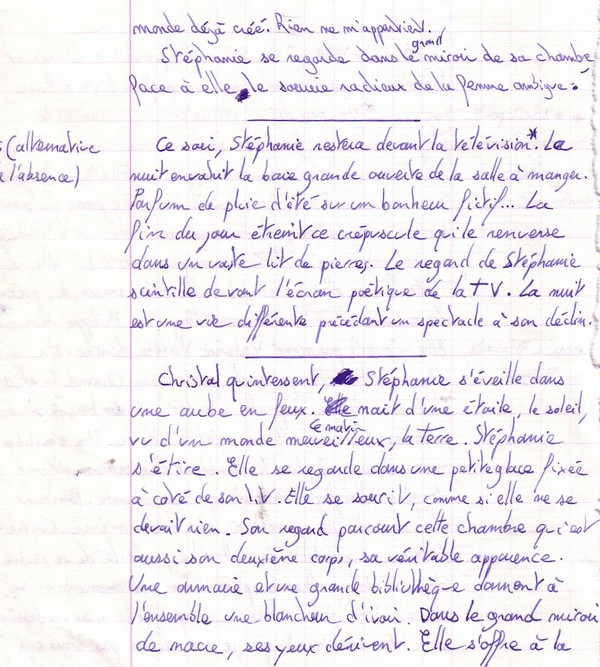 monde déjà créé. Rien ne m'appartient.
grand
Stéphanie se regarde dans le miroir de sa chambre,
face à elle, le sourire radieux de la femme ambigue.
: (alternative
à l'absence)
Ce soir, Stéphanie restera devant la télévision*. La
nuit envahit la baie grande ouverte de la salle à manger.
Parfum de pluie d'été sur un bonheur fictif... La
fine du jour étreint ce crépuscule qui le renverse
dans un vaste lit de pierres. Le regard de Stéphanie
scintille devant l'écran poétique de la TV. La nuit
est une vie différente précédant un spectacle à son déclin.
Christal quintessent, Stéphanie s'éveille dans
une aube en feux. Elle nait d'une étoile, le soleil,
ce matin
vu d'un monde merveilleux, la terre. Stéphanie
s'étire. Elle se regarde dans une petite glace fixée
à coté de son lit. Elle se sourit, comme si elle ne se
devait rien. Son regard parcourt cette chambre qui est
aussi son deuxième corps, sa véritable apparence.
Une armoire et une grande bibliothèque donnent à
l'ensemble une blancheur d'ivoire. Dans le grand miroir
de nacre, ses yeux dérivent. Elle s'offre à la